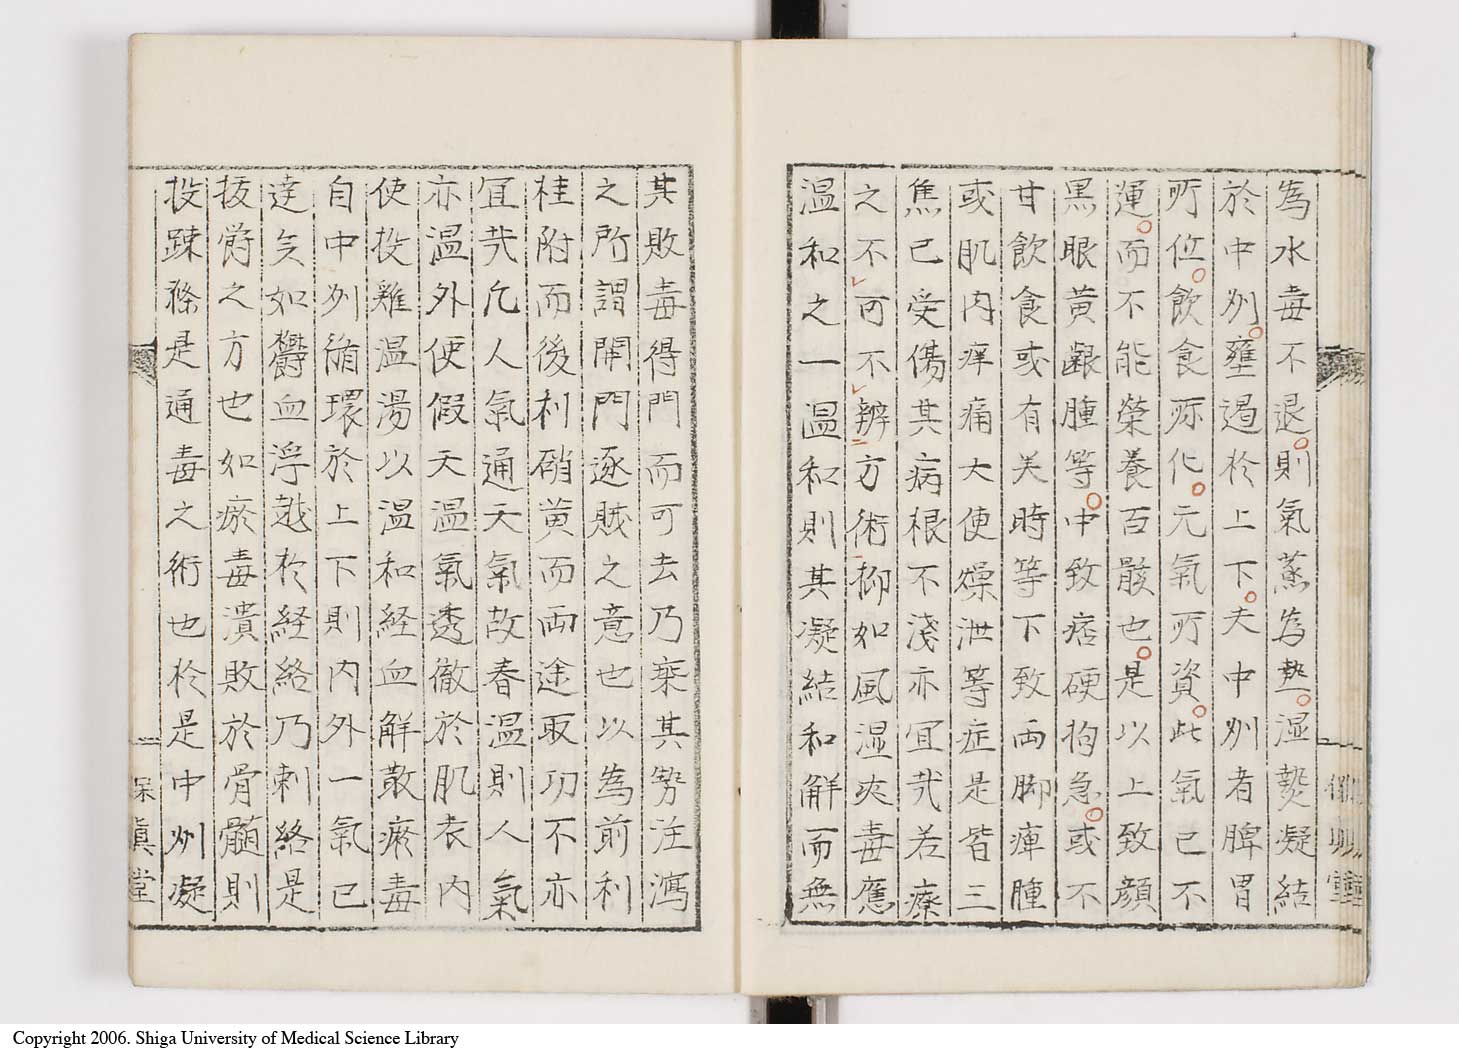 為水毒不退則氣蒸為熱湿熱凝結
於中州壅遏於上下夫中州者脾胃
所位飲食所化元氣所資此氣已不
運而不能榮養百骸也是以上致顔
黒眼黄齦腫等中致痞硬拘急或不
甘飲食或有美時等下致両脚痺腫
或肌肉痒痛大便燥泄等症是皆三
焦已受傷其病根不淺亦宜哉若療
之不可不辨方術抑如風湿夾毒應
温和之一温和則其凝結和解而無
其敗毒得門而可去乃乗其勢注瀉
之所謂開門逐賊之意也以為前利
桂附而後利硝黄而両途取功不亦
宜哉凡人氣通天氣故春温則人氣
亦温外使假天温氣透徹於肌表内
使投雞温湯以温和経血解散瘀毒
自中州循環於上下則内外一氣已
達矣如欝血浮越於経絡乃刺絡是
抜窘之方也如瘀毒潰敗於骨髄則
投蹂滌是通毒之術也於是中州凝
眞堂
Copyright 2006. Shiga University of Medical Science Library